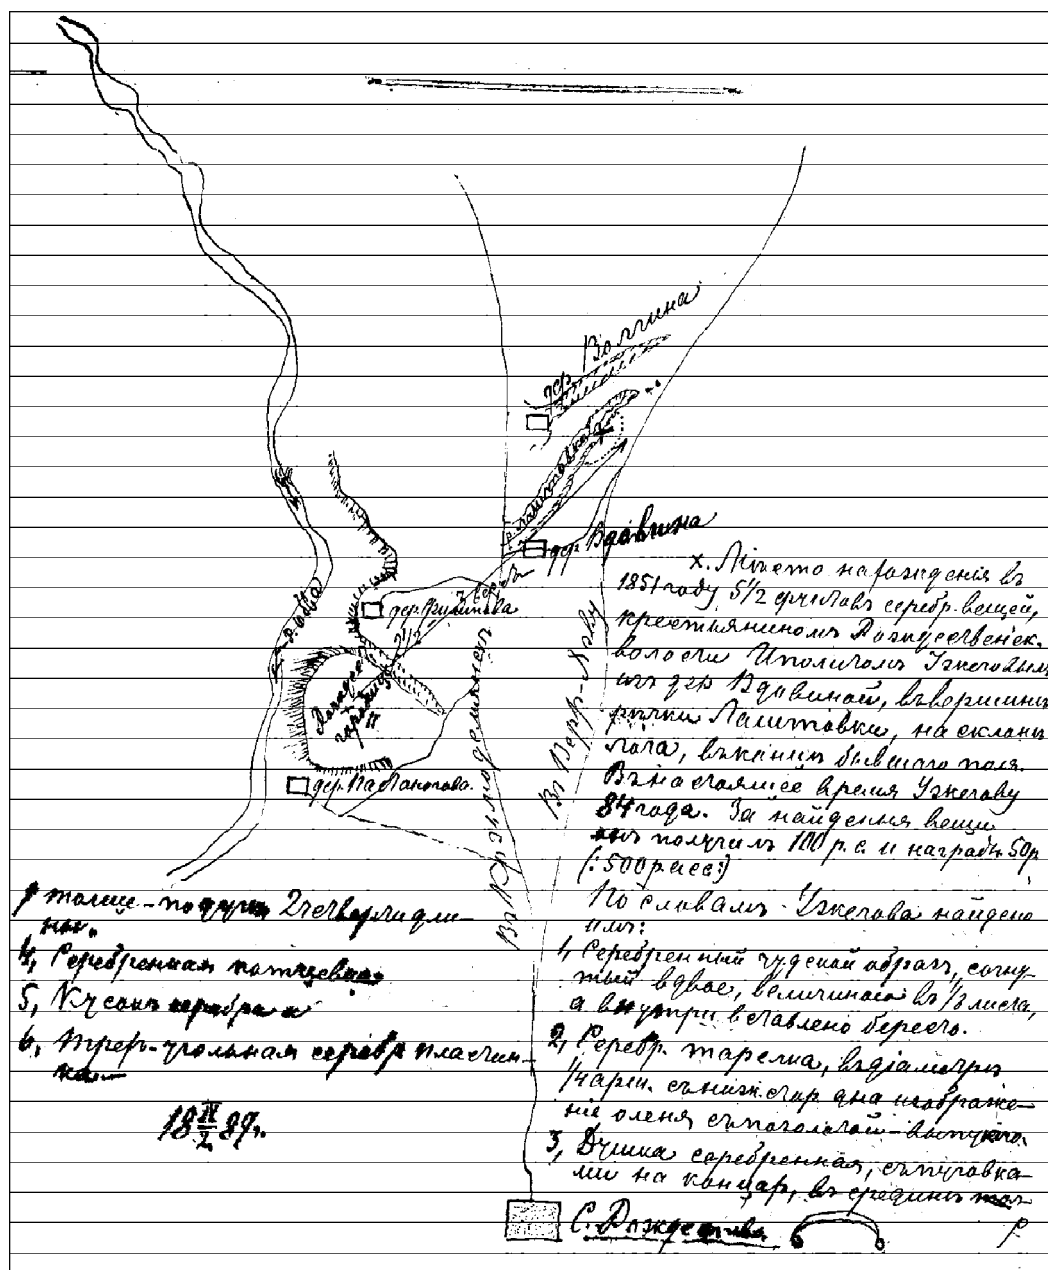 дер. Волгина
р. Лаштовка
дер. Вдовина
р. Обва
дер. Филипова
2 1/2 верст
Рождес.
городище
II
дер. Пастаногова.
Въ Кр.
Въ Верх-Яву
х. Мѣсто нахожденія въ
1851 году 5 1/2 фунтовъ серебр. вещей,
крестьяниномъ Рождественск.
волости Иполитомъ Ужеговымъ
изъ дер. Вдовиной, въ вершинѣ
рѣчки Лаштовки, на склонѣ
лога, въ концѣ бывшаго поля.
Въ настоящее время Ужегову
84 года. За найденныя вещи
онъ получилъ 100 р. с. и наградн. 50 р.
(: 500 р. асс :)
По словамъ Ужегова найдено
имъ:
1, Серебренный чудской образъ, согну-
тый вдвое, величиною въ 1/2 листа,
а внутри вставлено бересто.
2, Серебр. тарелка, въ діаметрѣ
1/4 арш. съ нижн. стор. дна изображе-
ніе оленя съ позолотой - выпукло.
3, Дужка серебренная, съ пуговка-
ми на концахъ, въ срединѣ
толще - по дугѣ 2 четверти дли-
ною.
4, Серебренная
5, Кусокъ серебра
6, Трех-угольная серебр. пластин-
ка
18 II/2 89 г.
С. Рождества